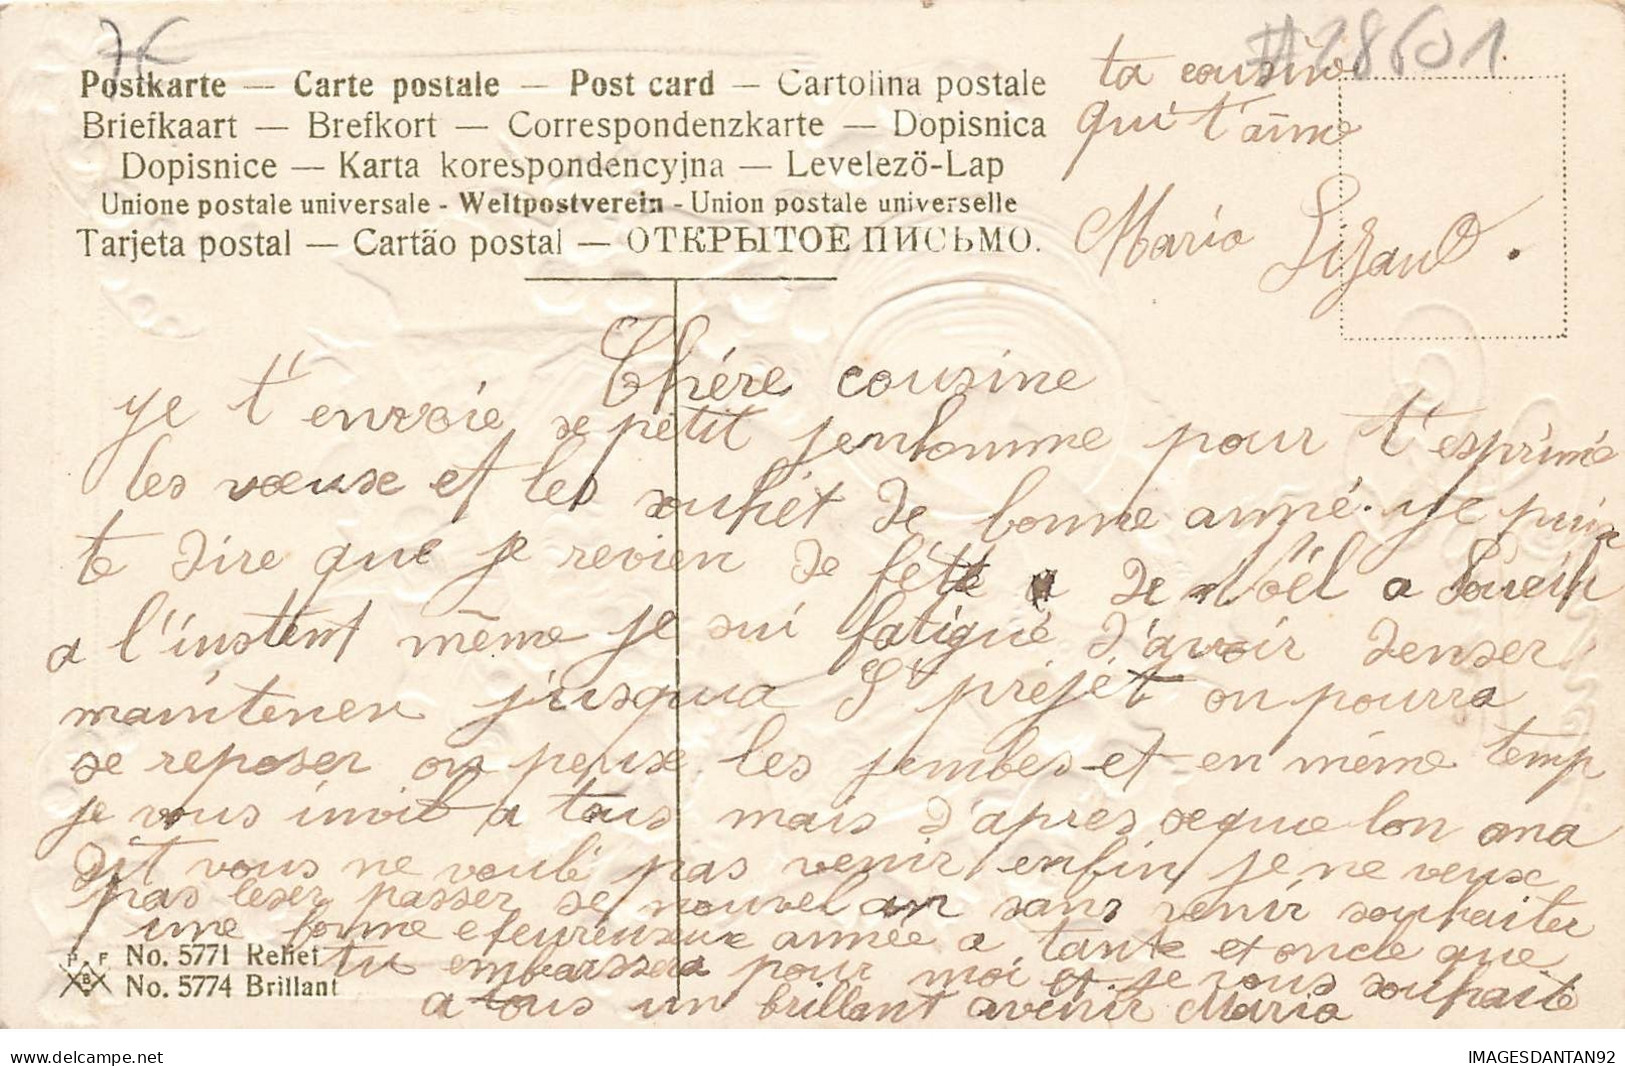 7€
#28601
Postkarte — Carte postale — Post card — Cartolina postale
Briefkaart — Brefkort — Correspondenzkarte — Dopisnica
Dopisnice — Karta korespondencyjna — Levelezö-Lap
Unione postale universale - Weltpostverein - Union postale universelle
Tarjeta postal — Cartão postal — ОТКРЫТОЕ ПИСЬМО.
ta cousine
qui t'aime
Maria Lizano.
Chére cousine
je t'envoie se petit jenhomme pour t'esprimé
les vœuse et les souhét de bonne anné. je puis
te dire que je revien de féte a de nöel a Soueih
a l'instent même je sui fatigué d'avoir denser
maintenen jusqua St préjét on pourra
se reposer on peuse les jembes et en même temp
je vous invit a tous mais d'apres seque lon ma
dit vous ne voulé pas venir enfin je ne veux
pas leser passer se nouvel an sans venir souhaiter
une bonne eteureuse année a tante et oncle que
tu embarssera pour moi et je vous souhaite
a tous un brillant avenir Maria
P F
B
No. 5771 Relief
No. 5774 Brillant
delcampe.net
IMAGESDANTAN92